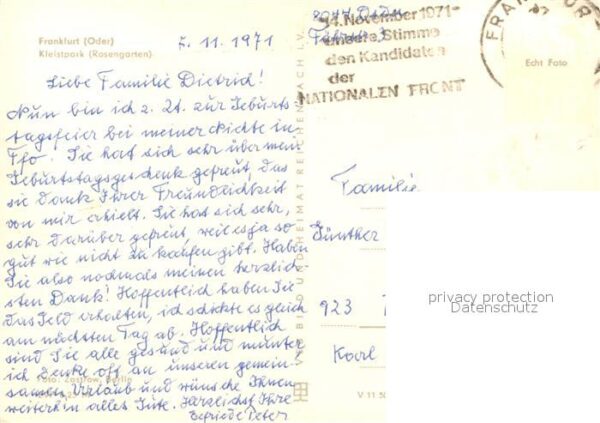 Frankfurt (Oder)
Kleistpark (Rosengarten)
7.11.1971
Liebe Familie Dietrich!
Nun bin ich z. Zt. zur Geburts
tagsfeier bei meiner Nichte in
Ffo. Sie hat sich sehr über mein
Geburtstagsgeschenk gefreut, das
sie dank Ihrer Freundlichkeit
von mir erhielt. Sie hat sich sehr,
sehr darüber gefreut, weil es ja so
gut wie nicht zu kaufen gibt. Haben
Sie also nochmals meinen herzlich
sten Dank! Hoffentlich haben Sie
das Geld erhalten, ich schickte es gleich
am nächsten Tag ab. Hoffentlich
sind Sie alle gesund und munter
ich denke oft an unseren gemein-
samen Urlaub und wünsche Ihnen
weiterhin alles Gute. Herzlichst Ihre
Elfriede Peter
Foto: Zastrow, Berlin
VEB BILD UND HEIMAT REICHENBACH I. V.
14. November 1971-
unsere Stimme
den Kandidaten
der
NATIONALEN FRONT
FRANKFUR
Echt Foto
Familie
Günther
923
Karl
V 11 50
privacy protection
Datenschutz